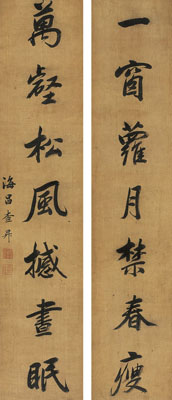 一窗蘿月禁春瘦
萬壑松風撼晝眠
海昌查昇